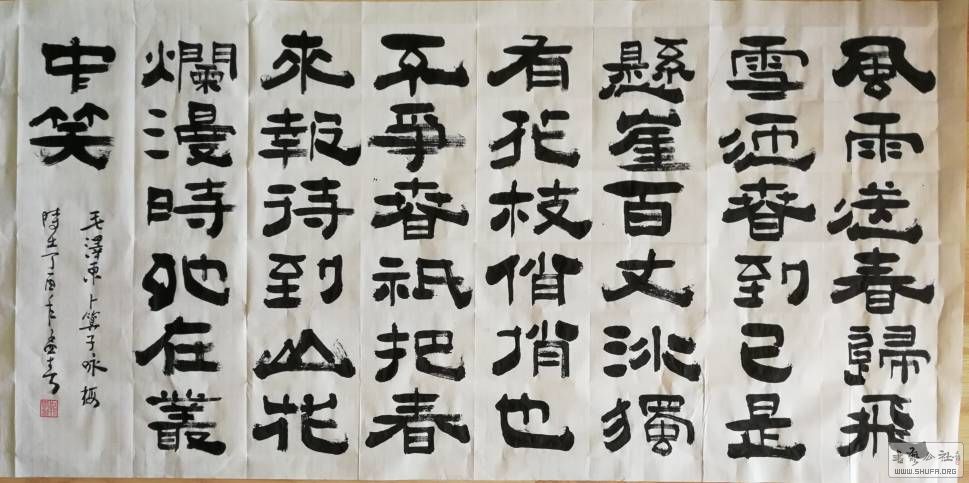 風雨送春歸飛
雪迎春到已是
懸崖百丈冰獨
有花枝俏俏也
不爭春祇把春
來報待到山花
爛漫時她在叢
中笑
毛澤東卜算子咏梅
丁酉年孟春
書藝公社
WWW.SHUFA.ORG